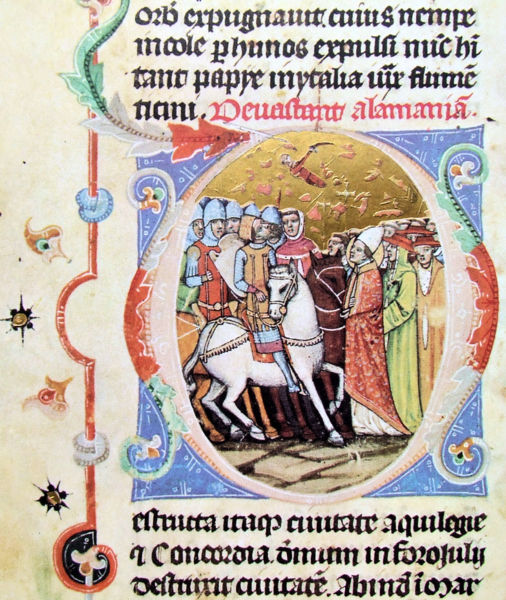 orb̄ expugnauit cuius nempe
incole ꝑ hunos expulsi nūc hi
tant papye in ytalia iux̄ flumē
ticini. Deuastant alamaniā.
Destructa itaqꝫ ciuitate aquilegie
⁊ Concordia. om̄ium in foroiuly
destruxit ciuitatē. Abind̄ i mar